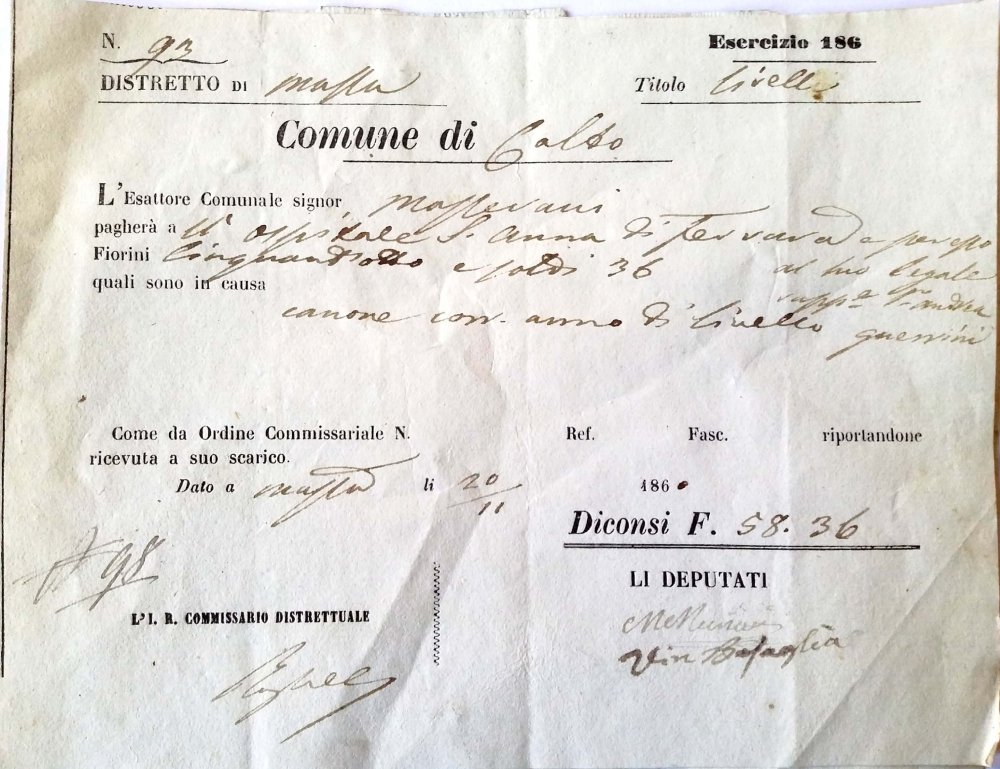 N. 93
Esercizio 186
DISTRETTO DI Massa
Titolo Livelli
Comune di Calto
L'Esattore Comunale signor
pagherà a ll' Ospitale S. Anna di Ferrara e per esso
Fiorini Cinquantotto e soldi 36 al suo legale
quali sono in causa
rapp.e Andrea
canone corr. anno di Livello Guerrini
Come da Ordine Commissariale N. Ref. Fasc. riportandone
ricevuta a suo scarico.
Dato a Massa li 20/11 1860
Diconsi F. 58.36
LI DEPUTATI
98
L'I. R. COMMISSARIO DISTRETTUALE
Battaglia